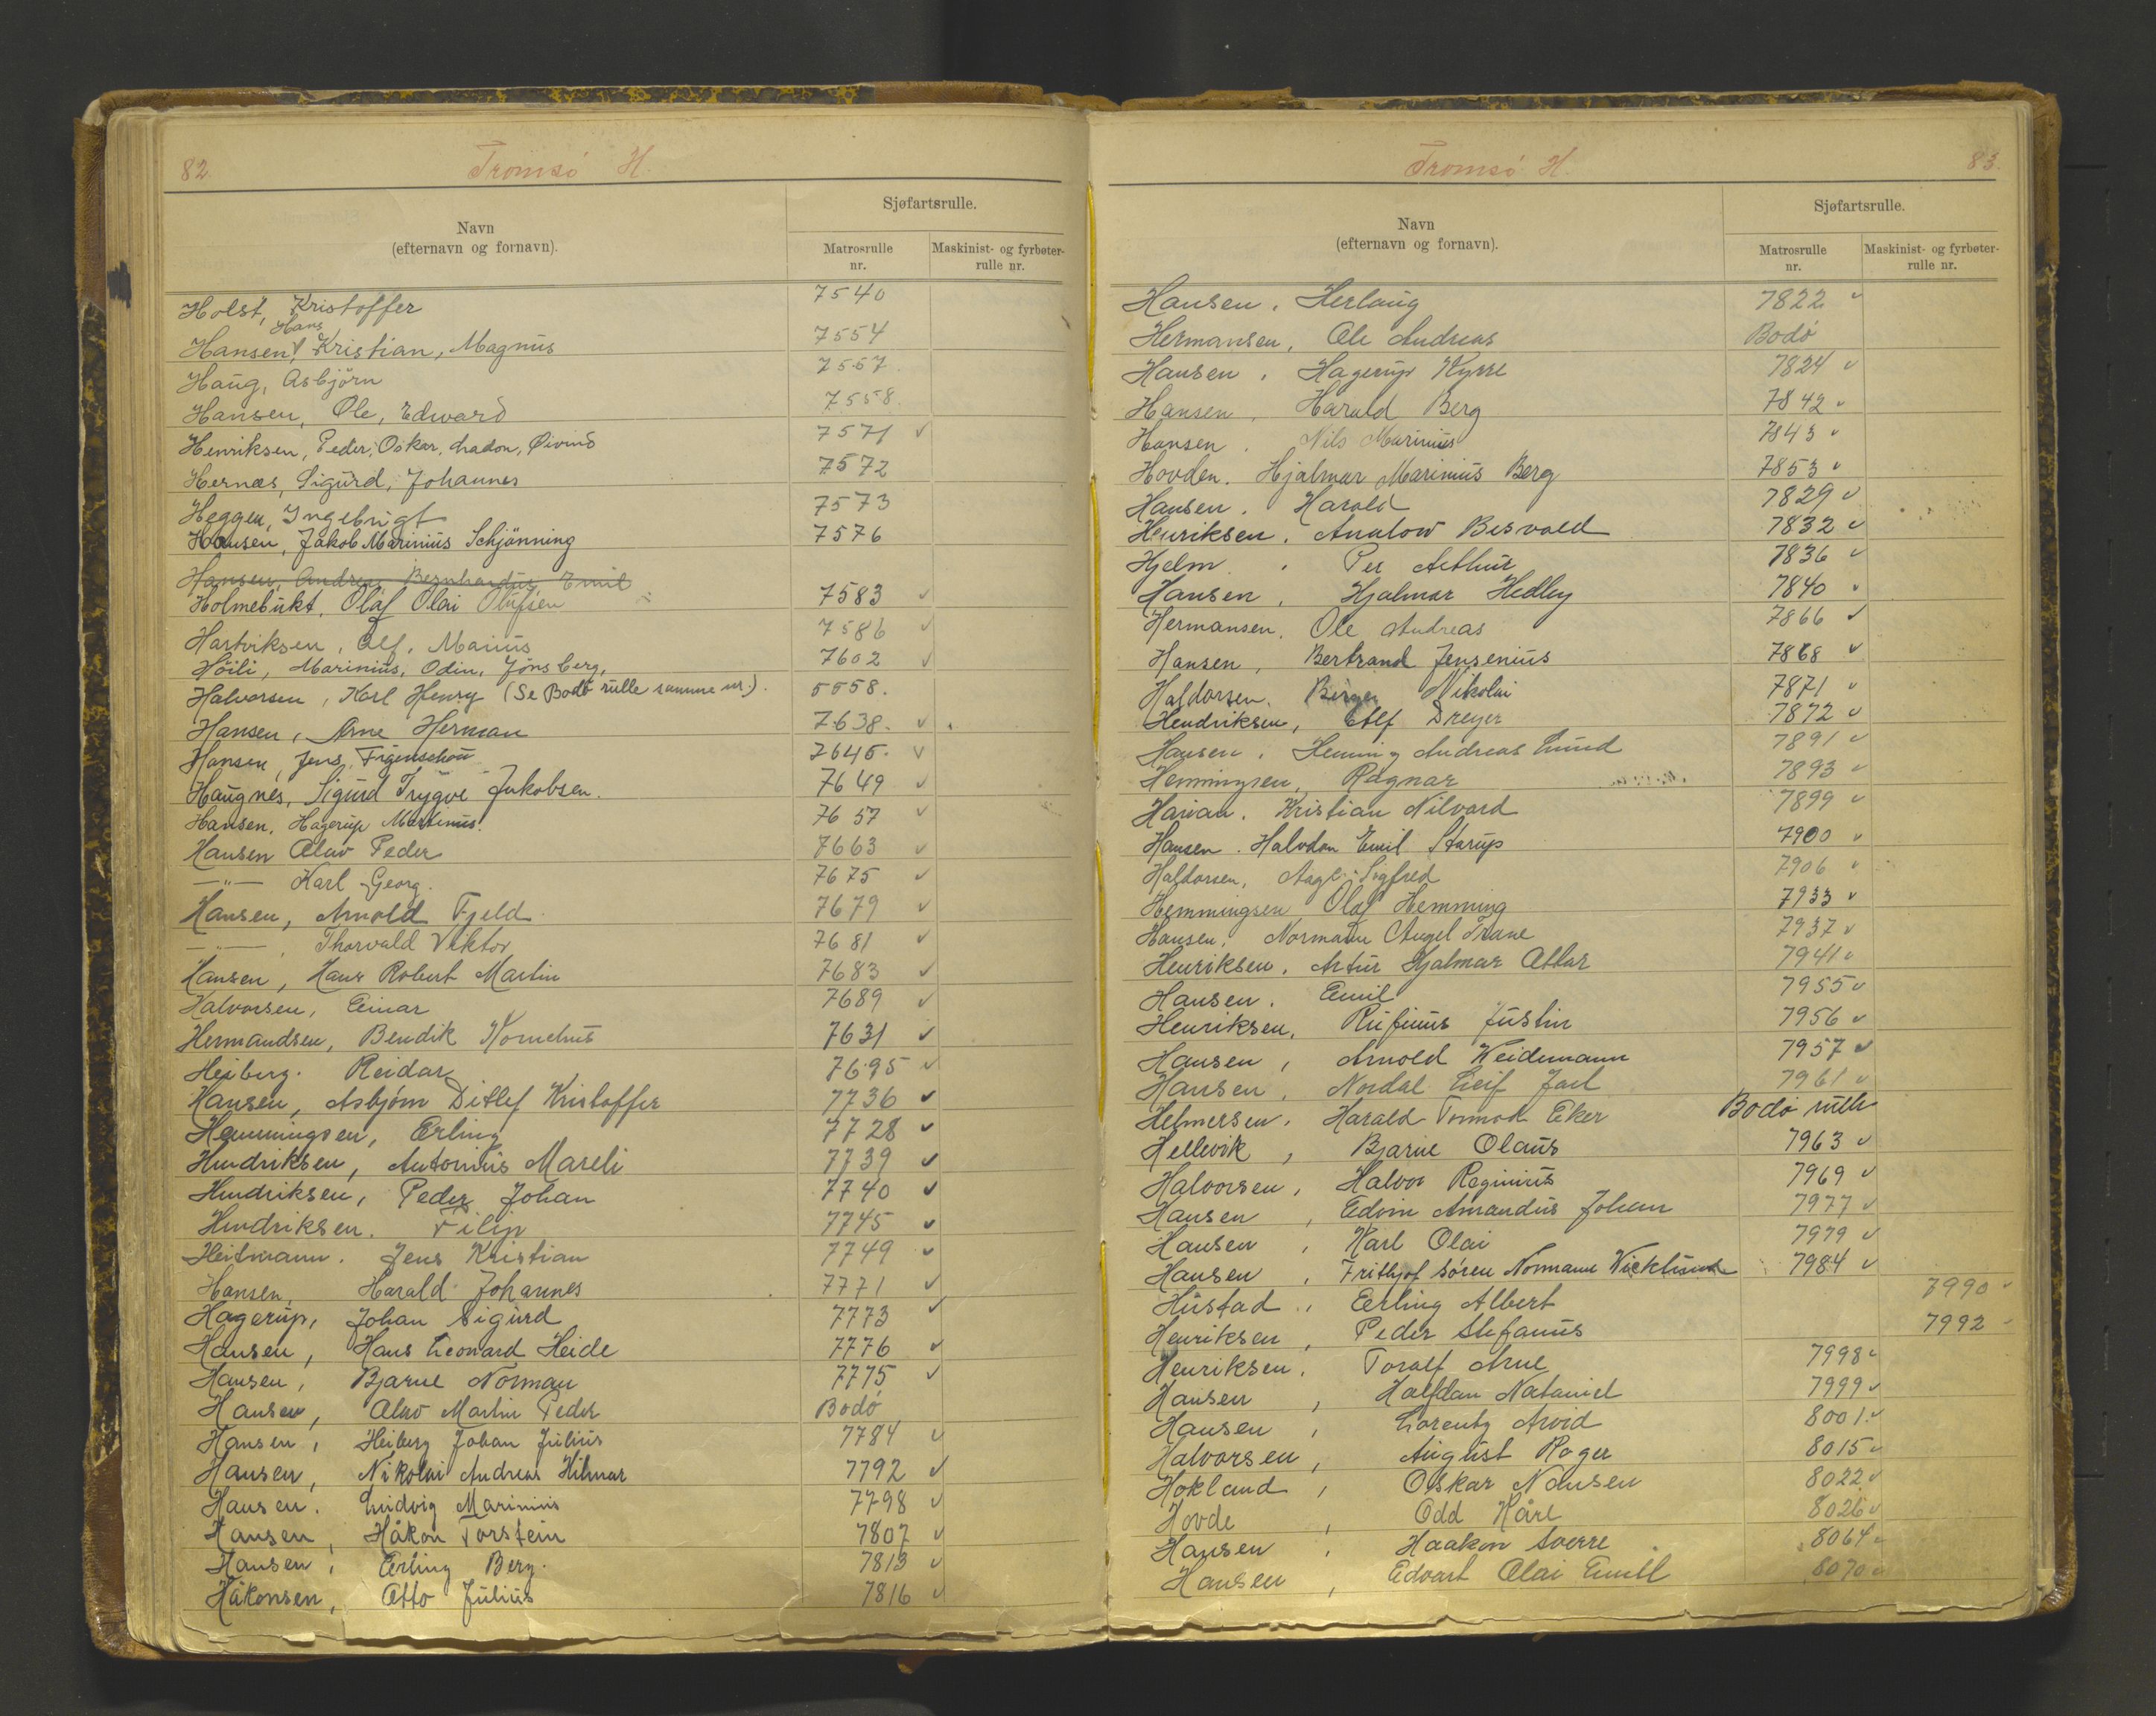 82.
Tromsø H.
Navn
(efternavn og fornavn).
Sjøfartsrulle.
Matrosrulle
nr.
Maskinist- og fyrbøter-
rulle nr.
Holst, Kristoffer 7540
Hans
Hansen, Kristian, Magnus 7554
Haug, Asbjörn 7557.
Hansen, Ole, Edward 7558.
Henriksen, Peder, Oskar, Øivind 7571 ✓
Hernæs, Sigurd, Johannes 7572
Heggen, Ingebrigt 7573
Hansen, Jakob Marinius Schjänning 7576
Hansen, Andreas Bernhardus Emil
Holmebukt, Olaf Olai Olufsen 7583 ✓
Hartviksen, Alf, Marius 7586 ✓
Höili, Marinius, Odin, Jönsberg, 7602 ✓
Halvorsen, Karl Henry (Se Bodö rulle samme nr.). 5558.
Hansen, Arne Herman 7638. ✓
Hansen, Jens, Figenschou 7645. ✓
Haugnes, Sigurd Trygve Jakobsen. 7649 ✓
Hansen, Hagerup Martinus. 7657 ✓
Hansen Olav Peder 7663 ✓
—"— Karl Georg. 7675 ✓
Hansen, Arnold Fjeld. 7679 ✓
—"—, Thorvald Viktor 7681 ✓
Hansen, Hans Robert Martin 7683 ✓
Halvorsen, Einar 7689 ✓
Hermandsen, Bendik Kornelius 7631 ✓
Heiberg. Reidar 7695 ✓
Hansen, Asbjørn Ditlef Kristoffer 7736 ✓
Hemmingsen, Erling 7728 ✓
Hendriksen, Antonius Mareli 7739 ✓
Hendriksen, Peder Johan 7740 ✓
Hendriksen. Filip 7745 ✓
Heitmann. Jens Kristian 7749 ✓
Hansen, Harald Johannes 7771 ✓
Hagerup, Johan Sigurd 7773 ✓
Hansen, Hans Leonard Heide 7776 ✓
Hansen, Bjarne Norman 7775 ✓
Hansen, Olav Martin Peder Bodø
Hansen, Heiberg Johan Julius 7784 ✓
Hansen, Nikolai Andreas Hilmar 7792 ✓
Hansen. Ludvig Marinius 7798 ✓
Hansen, Håkon Torstein 7807 ✓
Hansen, Erling Berg. 7813 ✓
Håkonsen, Otto Julius 7816 ✓
Tromsø H.
83.
Navn
(efternavn og fornavn).
Sjøfartsrulle.
Matrosrulle
nr.
Maskinist- og fyrbøter-
rulle nr.
Hansen, Herlaug 7822 ✓
Hermansen, Ole Andreas Bodö
Hansen, Hagerup Kyrre 7824 ✓
Hansen, Harald Berg 7842 ✓
Hansen, Nils Marinius 7843 ✓
Hovden. Hjalmar Marinius Berg 7853 ✓
Hansen. Harald 7829 ✓
Henriksen. Analow Besvald 7832 ✓
Hjelm. Per Arthur 7836 ✓
Hansen, Hjalmar Hedley 7840 ✓
Hermansen, Ole Andreas 7866 ✓
Hansen, Bertrand Jensenius 7868 ✓
Haldorsen. Birger Nikolai 7871 ✓
Hendriksen, Alf Dreyer 7872 ✓
Hansen, Henning Andreas Lund 7891 ✓
Hemmingsen, Ragnar 7893 ✓
Kristian Nilvard 7899 ✓
Hansen. Halvdan Emil Starup 7900 ✓
Haldorsen, Aage Sigfred 7906 ✓
Hemmingsen Olaf Hemming 7933 ✓
Hansen, Normann Angel Trane 7937 ✓
Henriksen. Artur Hjalmar Attar 7941 ✓
Hansen. Emil 7955 ✓
Henriksen, Rufinus Justin 7956 ✓
Hansen, Arnold Weidemann 7957 ✓
Hansen, Nordal Leif Jarl 7961 ✓
Helmersen, Harald Tormod Eker Bodö rulle
Hellevik, Bjarne Olaus 7963 ✓
Halvorsen, Halvor Reginius 7969 ✓
Hansen, Edvin Amandus Johan 7977 ✓
Hansen, Karl Olai 7979 ✓
Hansen, Frithjof Søren Normann Wicklund 7984 ✓
Hustad, Erling Albert 7990 ✓
Henriksen, Peder Stefanus 7992
Henriksen. Toralf Arne 7998 ✓
Hansen, Halfdan Nataniel 7999 ✓
Hansen, Lorentz Arvid 8001 ✓
Halvorsen, August Roger 8015 ✓
Hokland, Oskar Nansen 8022 ✓
Hovde, Odd Kåre 8026 ✓
Hansen, Haakon Sverre 8064 ✓
Hansen, Edvart Olai Emil 8070 ✓